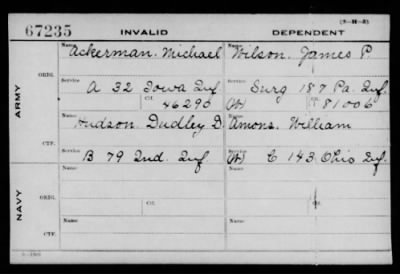 67235 INVALID DEPENDENT (3-M-3)
ARMY
ORIG.
Name Ackerman. Michael Name Wilson. James P.
Service A 32 Iowa Inf Service Surg 187 Pa. Inf.
Ctf. 46290 (W) Ctf. 81006
CTF.
Name Hudson Dudley D. Name Amons. William
Service B 79 Ind. Inf Service (W) C 143 Ohio Inf.
NAVY
ORIG.
Name Name
Ctf. Ctf.
CTF.
Name Name